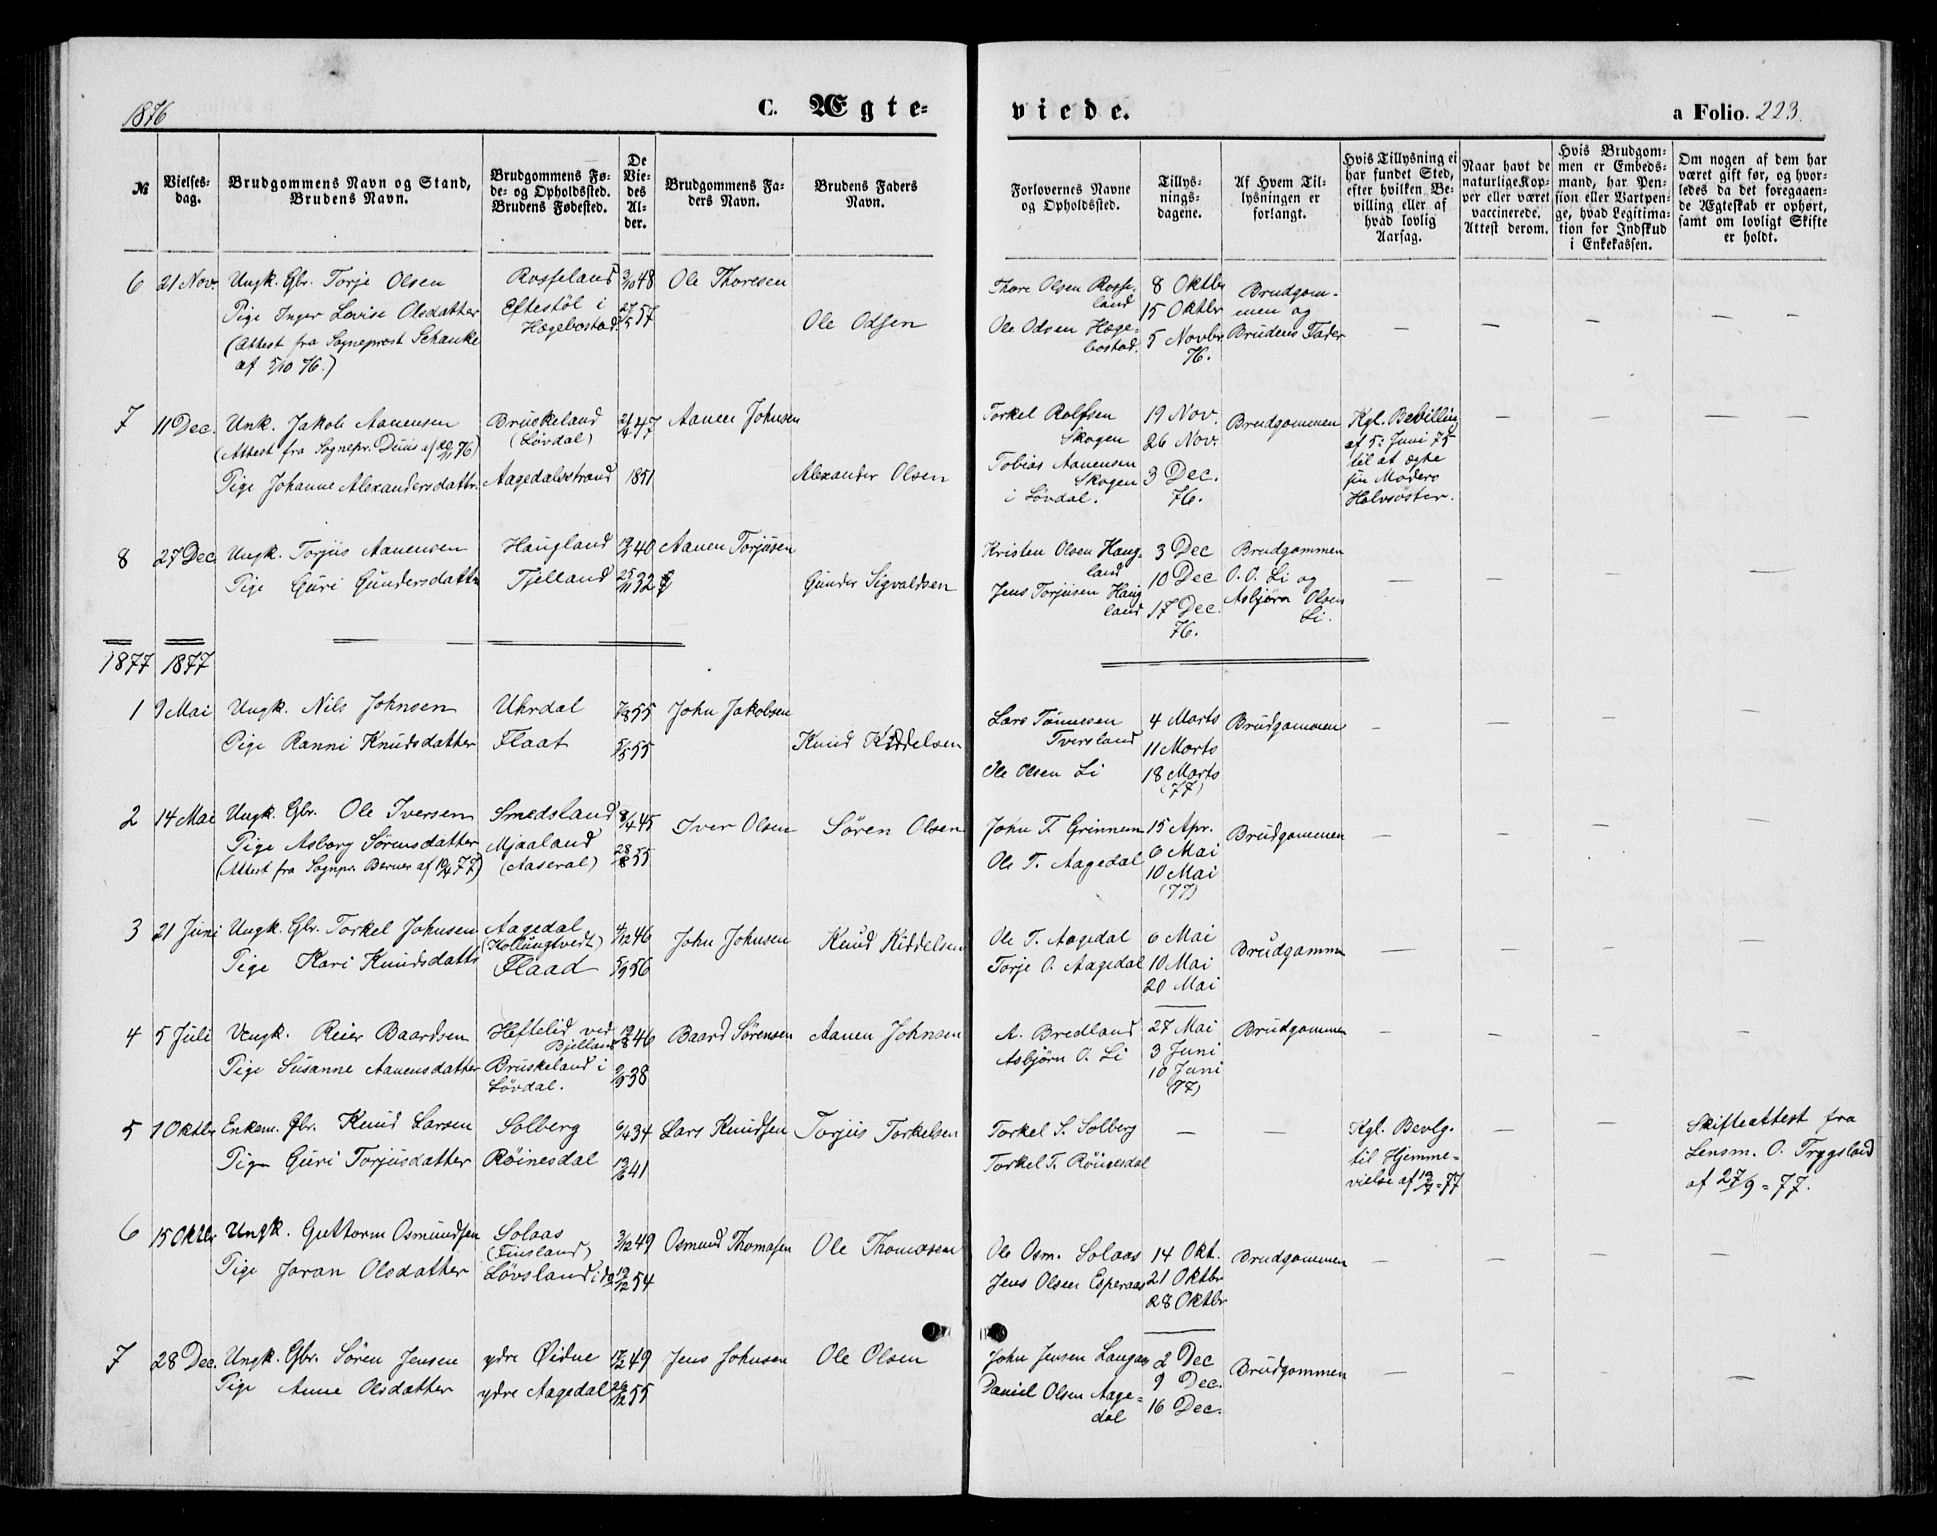 1876
C. Ægte=
viede.
a Folio. 223.
№
Vielses-
dag.
Brudgommens Navn og Stand,
Brudens Navn.
Brudgommens Fø-
de- og Opholdssted.
Brudens Fødested.
De
Vie-
des
Al-
der.
Brudgommens Fa-
ders Navn.
Brudens Faders
Navn.
Forlovernes Navne
og Opholdssted.
Tillys-
nings-
dagene.
Af Hvem Til-
lysningen er
forlangt.
Hvis Tillysning ei
har fundet Sted,
efter hvilken Be-
villing eller af
hvad lovlig
Aarsag.
Naar havt de
naturlige Kop-
per eller været
vaccinerede.
Attest derom.
Hvis Brudgom-
men er Embeds-
mand, har Pen-
sion eller Vartpen-
ge, hvad Legitima-
tion for Indskud
i Enkekassen.
Om nogen af dem har
været gift før, og hvor-
ledes da det foregaaen-
de Ægteskab er ophørt,
samt om lovligt Skifte
er holdt.
6 21 Nov. Ungk. Gbr. Torje Olsen Rosseland 48 Ole Thoresen
Pige Inger Lovise Olsdatter Eftestöl i Hægebostad 27/5 57 Ole Odsen
(Attest fra Sogneprost Schanke
af 5/10 76.)
Thore Olsen Rosse-
land
Ole Odsen Hæge-
bostad.
8 Oktbr
15 Oktbr
5 Novbr
76.
Brudgom-
men og
Brudens Fader
— — — — —
7 11 Dec. Unk. Jakob Aanensen Bruskeland (Lövdal) 21/4 47 Aanen Johnsen
(Attest fra Sognepr. Duus af 76)
Pige Johanne Alexandersdattr. Aagedalsstrand 1851 Alexander Olsen
Torkel Rolfsen
Skogen
Tobias Aanensen
Skogen
i Lövdal.
19 Nov.
26 Nov.
3 Dec.
76.
Brudgommen
Kgl. Bevilling
af 5: Juni 75
til at ægte
sin Moders
Halvsöster.
— — — —
8 27 Dec. Ungk. Torjus Aanensen Haugland 40 Aanen Torjusen
Pige Guri Gundersdattr Tjelland 25/11 32 Gunder Sigvaldsen
Kristen Olsen Haug-
land
Jens Torjusen Haug
land
3 Dec
10 Dec
17 Dec.
76.
Brudgommen
O. O. Li og
Asbjörn Olsen
Li.
— — — —
1877 1877
1 9 Mai Ungk. Nils Johnsen Uhrdal 7/8 55 John Jakobsen
Pige Ranni Knudsdatter Flaat 5/5 55 Knud Kiddelsen
Lars Tönnesen
Tversland
Ole Olsen Li
4 Marts
11 Marts
18 Marts
(77)
Brudgommen
— — — —
2 14 Mai Ungk. Gbr. Ole Iversen Smedsland 8/4 45 Iver Olsen Sören Olsen
Pige Asborg Sörensdatter Mjaaland (Aaseral) 28/8 55
(Attest fra Sognpr. Berner af 77)
John T. Grinnem
Ole T. Aagedal
15 Apr.
6 Mai
10 Mai
(77)
Brudgommen
— — — —
3 21 Juni Ungk. Gbr. Torkel Johnsen Aagedal (Kollungtvedt) 46 John Johnsen Knud Kiddelsen
Pige Kari Knudsdattr Flaad 56
Ole T. Aagedal
Torje O. Aagedal
6 Mai
10 Mai
20 Mai
Brudgomme
— — — —
4 5 Juli Ungk. Reier Baardsen Heftelid ved Bjelland 46 Baard Sörensen Aanen Johnsen
Pige Susanne Aanensdatter Bruskeland i Lövdal. 38
A. Bredland
Asbjörn O. Li
27 Mai
3 Juni
10 Juni
(77)
Brudgommen
— — — —
5 1 Oktbr Enkem. Gbr. Knud Larsen Solberg 6/4 34 Lars Knudsen Torjus Torkelsen
Pige Guri Torjusdatter Röinesdal 41
Torkel S. Solberg
Torkel T. Röinesdal
— —
Kgl. Bevlg.
til Hjemme=
vielse af = 77
— —
Skifteattest fra
Lensm. O. Trygsland
af 27/9 = 77.
6 15 Oktbr Ungk. Guttorm Osmundsen Solaas (Finsland) 3/12 49 Osmund Thomasen Ole Thomasen
Pige Joran Olsdatter Lövsland i do 19/12 54
Ole Osm. Solaas
Jens Olsen Esperaas
14 Okt.
21 Oktbr
28 Oktbr
Brudgommen
— — — —
7 28 Dec. Ungk. Gbr. Sören Jensen ydre Øidne 49 Jens Johnsen Ole Olsen
Pige Anne Olsdatter ydre Aagedal 26/12 55
John Jensen Langaas
Daniel Olsen Aage=
dal
2 Dec
9 Dec.
16 Dec.
Brudgommen
— — — —